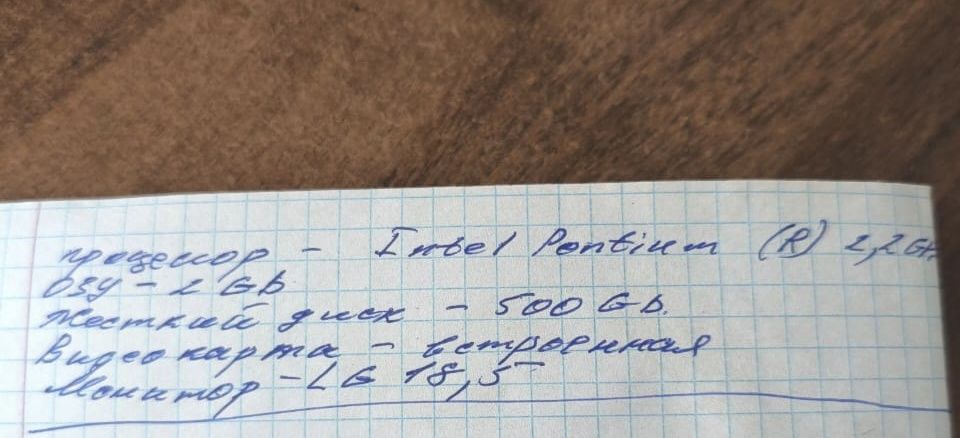 процессор - Intel Pentium (R) 2,2 GHz
ОЗУ - 2 Gb
Жесткий диск - 500 Gb.
Видеокарта - встроенная
Монитор - LG 18,5